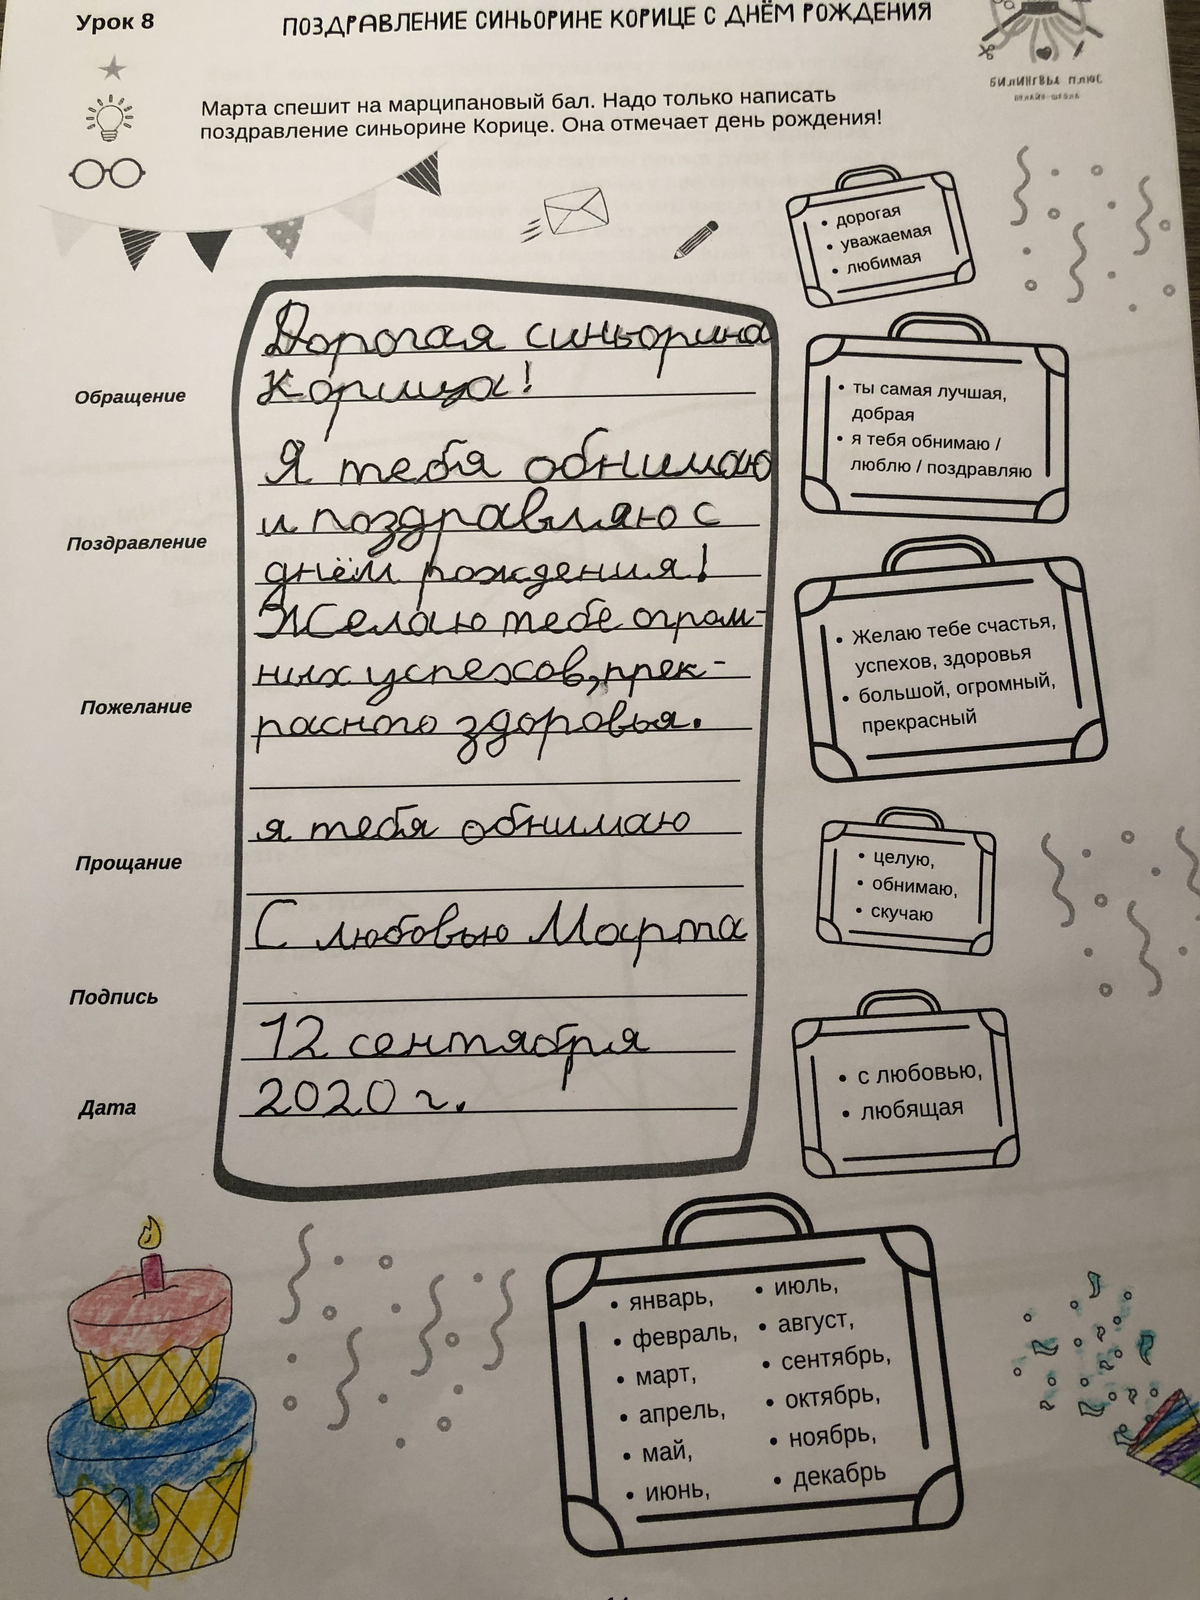 Урок 8
ПОЗДРАВЛЕНИЕ СИНЬОРИНЕ КОРИЦЕ С ДНЁМ РОЖДЕНИЯ
БИЛИНГВЫ ПЛЮС
ОНЛАЙН-ШКОЛА
Марта спешит на марципановый бал. Надо только написать
поздравление синьорине Корице. Она отмечает день рождения!
• дорогая
• уважаемая
• любимая
Обращение
Дорогая синьорина
Корица!
• ты самая лучшая,
добрая
• я тебя обнимаю /
люблю / поздравляю
Поздравление
Я тебя обнимаю
и поздравляю с
днём рождения!
Пожелание
Желаю тебе огром-
них успехов, прек-
расного здоровья.
• Желаю тебе счастья,
успехов, здоровья
• большой, огромный,
прекрасный
Прощание
я тебя обнимаю
• целую,
• обнимаю,
• скучаю
Подпись
С любовью Марта
• с любовью,
• любящая
Дата
12 сентября
2020 г.
• январь,
• февраль,
• март,
• апрель,
• май,
• июнь,
• июль,
• август,
• сентябрь,
• октябрь,
• ноябрь,
• декабрь